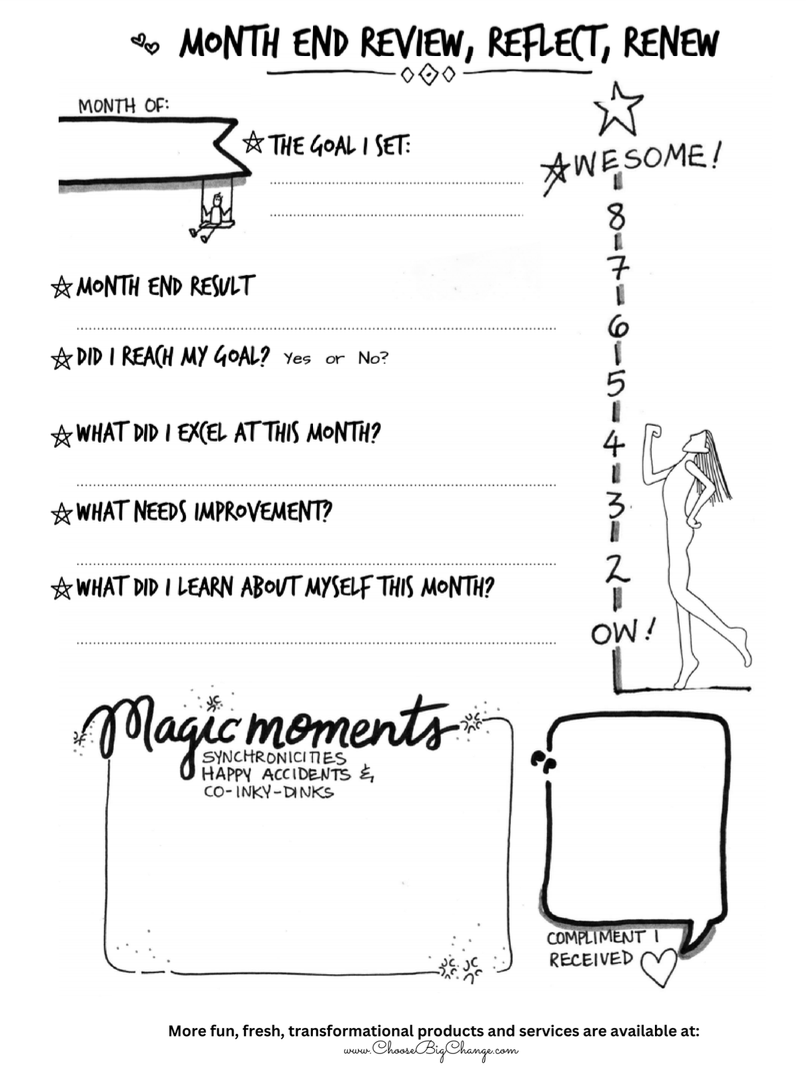 MONTH END REVIEW, REFLECT, RENEW
MONTH OF:
THE GOAL I SET:
MONTH END RESULT
DID I REACH MY GOAL? Yes or No?
WHAT DID I EXCEL AT THIS MONTH?
WHAT NEEDS IMPROVEMENT?
WHAT DID I LEARN ABOUT MYSELF THIS MONTH?
AWESOME!
8
7
6
5
4
3
2
OW!
Magic moments
SYNCHRONICITIES
HAPPY ACCIDENTS &
CO-INKY-DINKS
COMPLIMENT I
RECEIVED
More fun, fresh, transformational products and services are available at:
www.ChooseBigChange.com